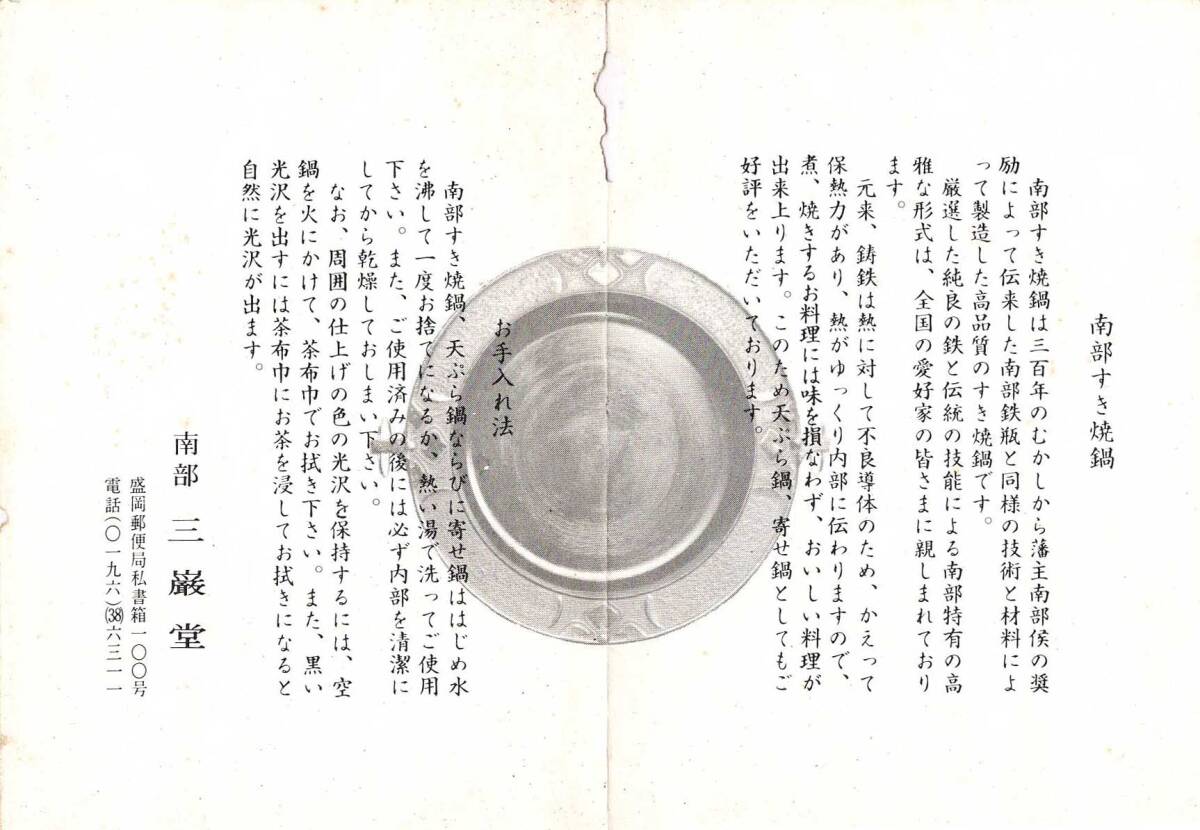 南部すき焼鍋
南部すき焼鍋は三百年のむかしから藩主南部侯の奨
励によって伝来した南部鉄瓶と同様の技術と材料によ
って製造した高品質のすき焼鍋です。
厳選した純良の鉄と伝統の技能による南部特有の高
雅な形式は、全国の愛好家の皆さまに親しまれており
ます。
元来、鋳鉄は熱に対して不良導体のため、かえって
保熱力があり、熱がゆっくり内部に伝わりますので、
煮、焼きするお料理には味を損なわず、おいしい料理が
出来上ります。このため天ぷら鍋、寄せ鍋としてもご
好評をいただいております。
お手入れ法
南部すき焼鍋、天ぷら鍋ならびに寄せ鍋ははじめ水
を沸して一度お捨てになるか、熱い湯で洗ってご使用
下さい。また、ご使用済みの後には必ず内部を清潔に
してから乾燥しておしまい下さい。
なお、周囲の仕上げの色の光沢を保持するには、空
鍋を火にかけて、茶布巾でお拭き下さい。また、黒い
光沢を出すには茶布巾にお茶を浸してお拭きになると
自然に光沢が出ます。
南部 三巌堂
盛岡郵便局私書箱一〇〇号
電話(〇一九六)(38)六三一一